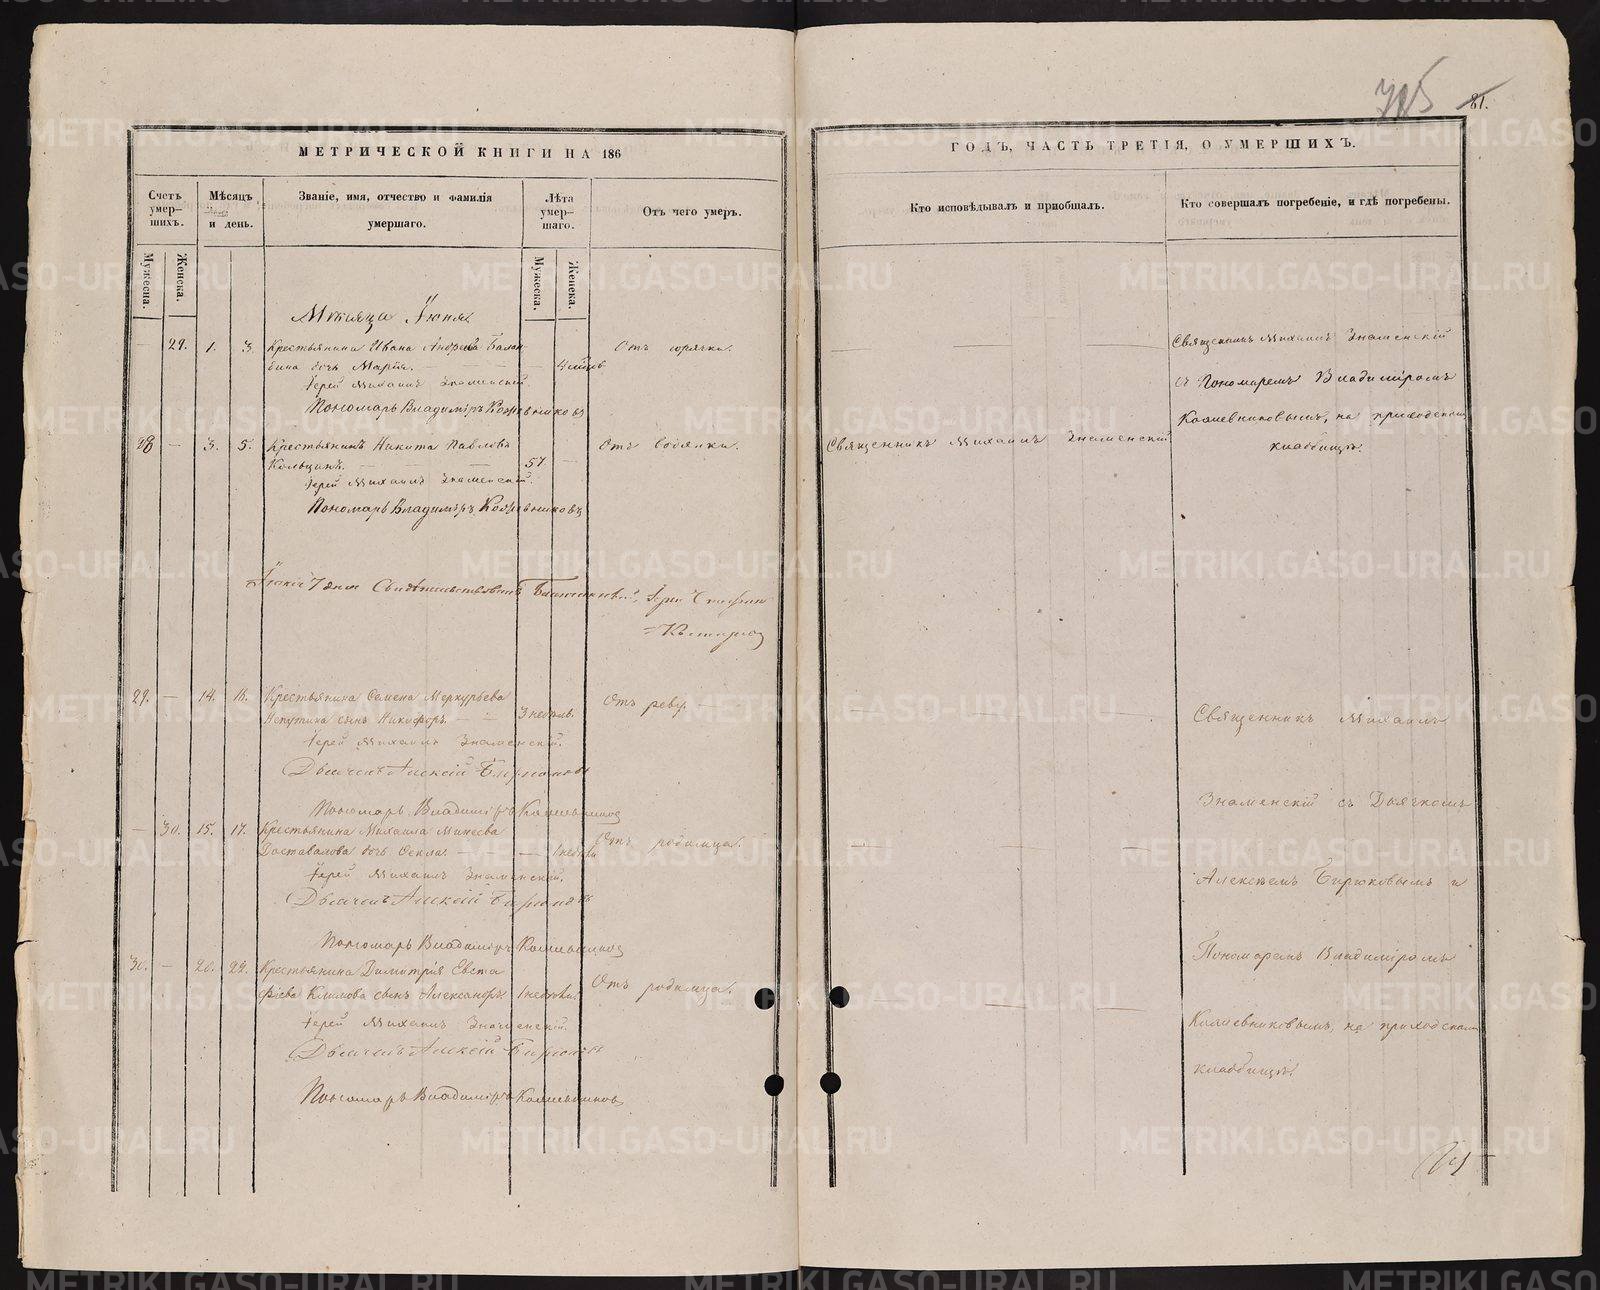 МЕТРИЧЕСКОЙ КНИГИ НА 186
Счетъ умер-шихъ.
Мѣсяцъ и день.
Званіе, имя, отчество и фамилія умершаго.
Лѣта умер-шаго.
Отъ чего умеръ.
Мужеска.
Женска.
Мужеска.
Женска.
Мѣсяца Іюня
29. 1. 3. Крестьянина Ивана Андреева Балан-
дина дочь Марія.
Отъ горячки.
Іерей Михаилъ Знаменскій.
Пономарь Владиміръ Кожевниковъ
28 — 3. 5. Крестьянинъ Никита Павловъ
Кольцинъ. 57.
Отъ водянки.
Іерей Михаилъ Знаменскій.
Пономарь Владиміръ Кожевниковъ
Іюня 7 дня Свидѣтельствовалъ
29. — 14. 16. Крестьянина Семена Меркурьева
сынъ Никифоръ. 3 недѣль.
Отъ реву.
Іерей Михаилъ Знаменскій.
Дьячекъ Алексій Бирюковъ
Пономарь Владиміръ Кожевниковъ
— 30. 15. 17. Крестьянина Михаила Михеева
Доставалова дочь Фекла. — 1 недѣли
Отъ родимца.
Іерей Михаилъ Знаменскій.
Дьячекъ Алексій Бирюковъ
Пономарь Владиміръ Кожевниковъ
30. — 20. 22. Крестьянина Димитрія Евста
фіева Климова сынъ Александръ 1 недѣли.
Отъ родимца.
Іерей Михаилъ Знаменскій.
Дьячекъ Алексій Бирюковъ
Пономарь Владиміръ Кожевниковъ
81.
ГОДЪ, ЧАСТЬ ТРЕТІЯ, О УМЕРШИХЪ.
Кто исповѣдывалъ и пріобщалъ.
Кто совершалъ погребеніе, и гдѣ погребены.
Священникъ Михаилъ Знаменскій
съ Пономаремъ Владиміромъ
Кожевниковымъ, на приходскомъ
кладбищѣ.
Священникъ Михаилъ Знаменскій
Священникъ Михаилъ
Знаменскій съ Дьячкомъ
Алексѣемъ Бирюковымъ и
Пономаремъ Владиміромъ
Кожевниковымъ, на приходскомъ
кладбищѣ.
METRIKI.GASO-URAL.RU